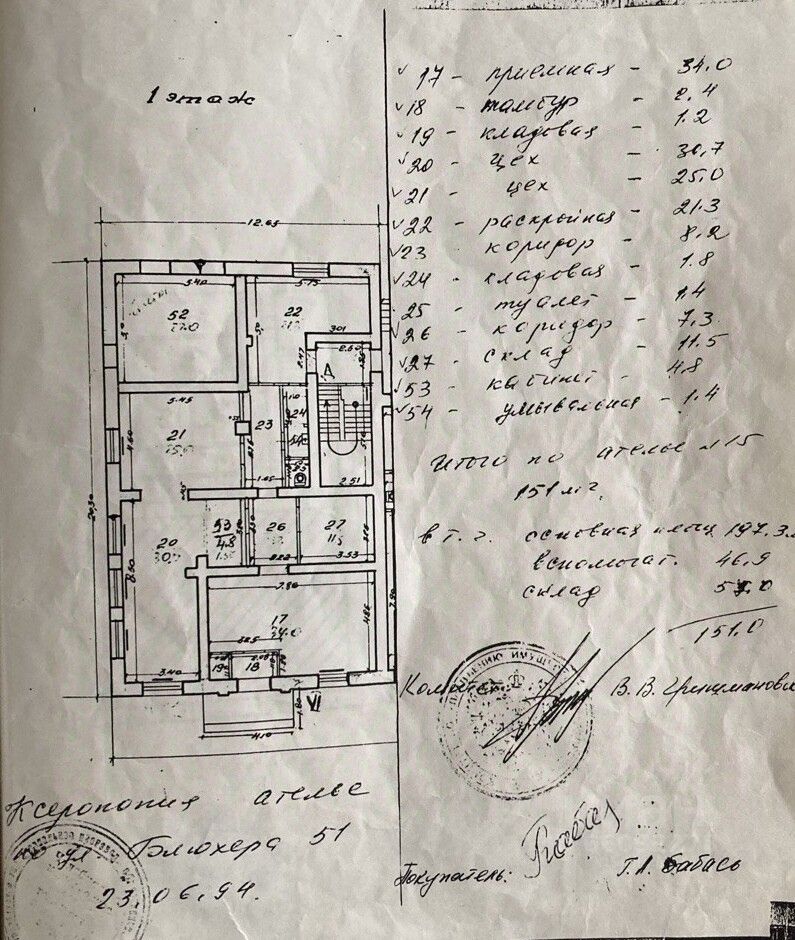 1 этаж
17 - приемная - 34.0
18 - тамбур - 2.4
19 - кладовая - 1.2
20 - цех - 30,7
21 - цех - 25.0
22 - раскройная - 21.3
23 коридор - 8.2
24 - кладовая - 1.8
25 - туалет - 1.4
26 - коридор - 7.3
27 - склад - 11.5
53 - кабинет - 4.8
54 - умывальная - 1.4
Итого по ателье №15
151 м2
в т. ч. основная 197.3
вспомогат. 46,9
склад
151.0
12.65
5.40
5.75
52
22
301
2.60
Д
5.45
21
23
24
54
1.65
2.51
20.50
4.60
20
8.50
53
4.8
26
27
11.5
3.53
7.86
17
4.86
19
18
3.40
VI
1.80
4.10
В. В. Гринцманова
Ксерокопия ателье
по ул Блюхера 51
23.06.94.
Покупатель: Т.Л. Бабась